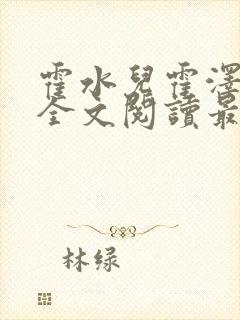 霍水兒霍澤
全文閱讀最
林绿